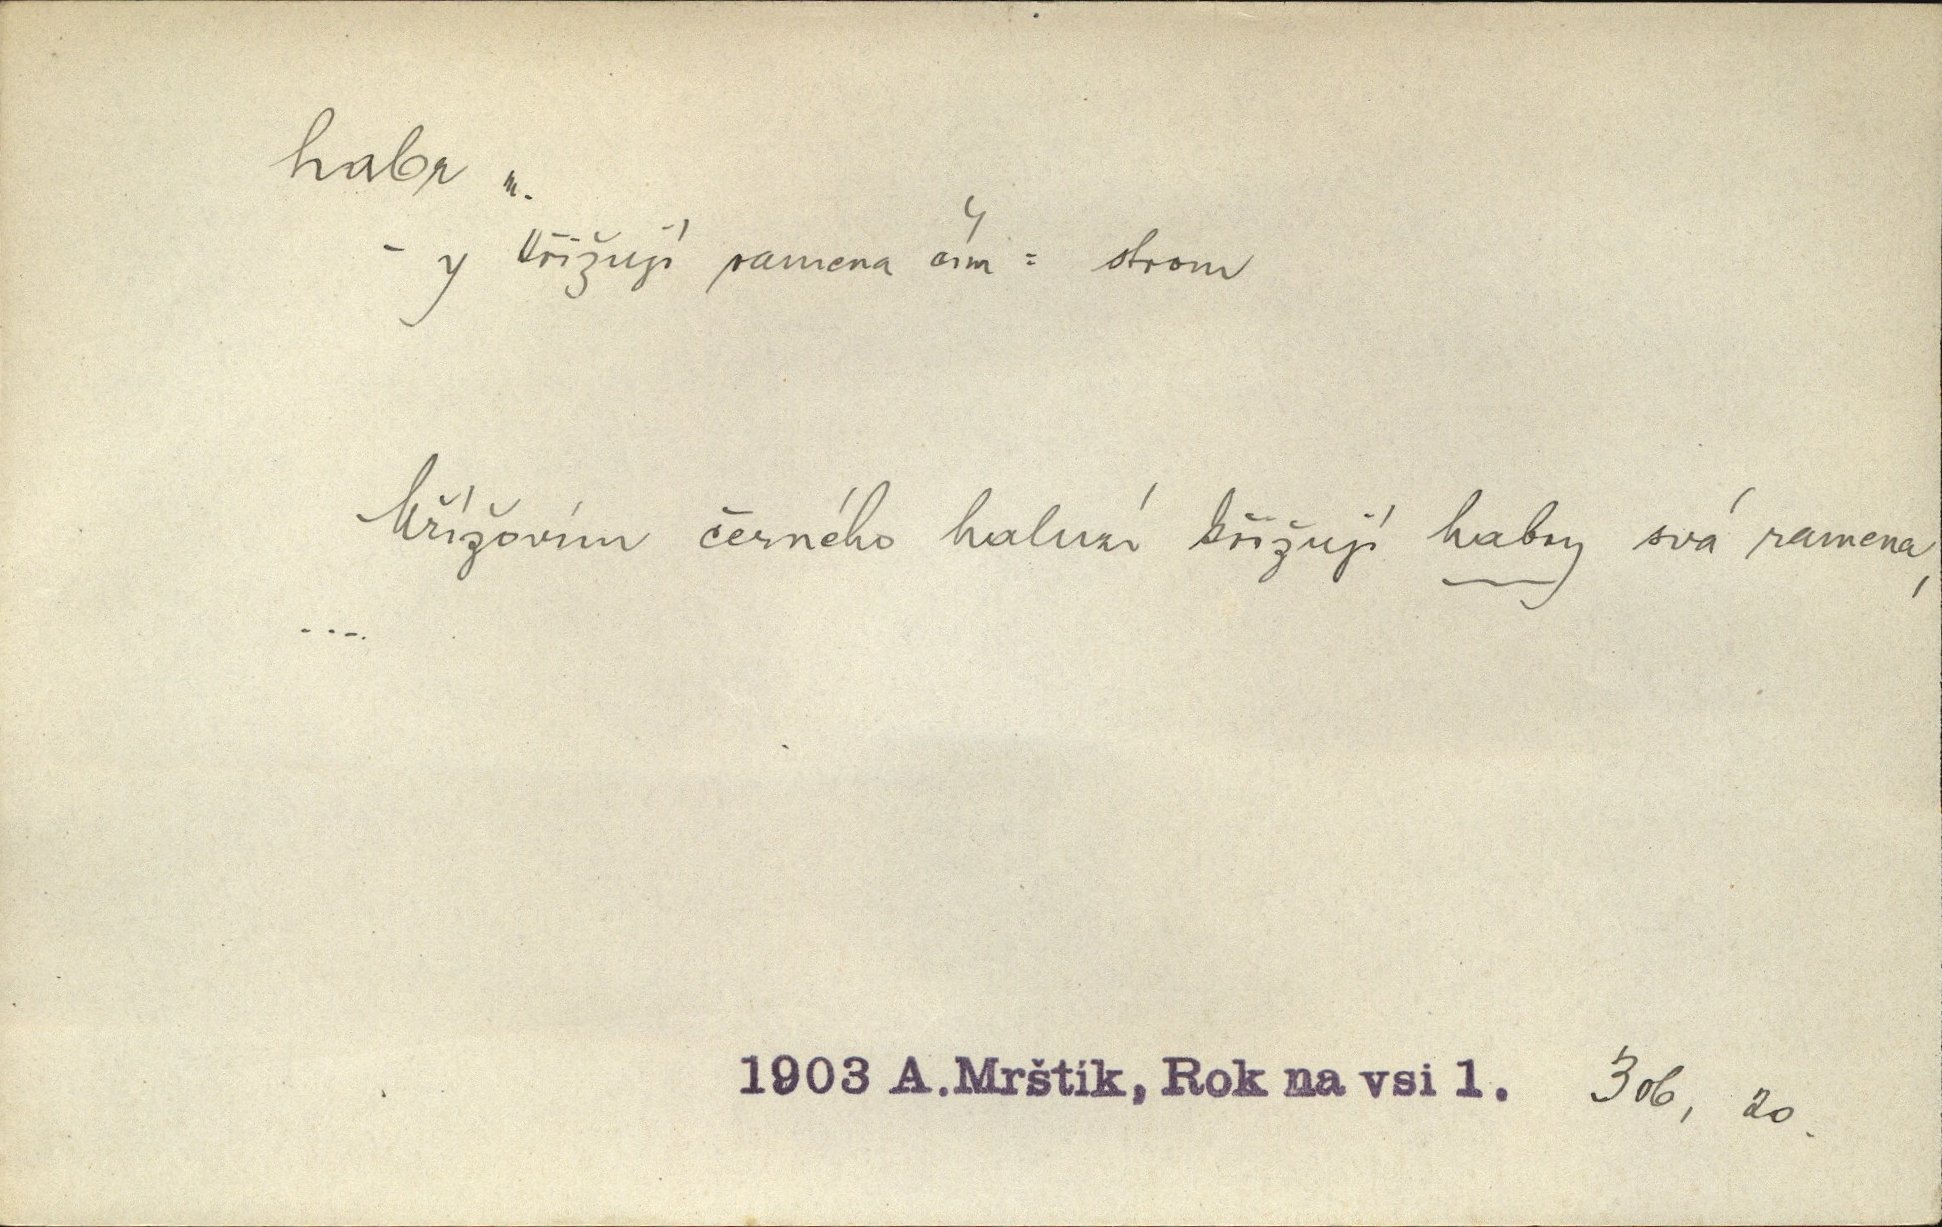 habr m.
- y křižují ramena čím = strom
křížovím černého haluzí křižují habry svá ramena,
....
1903 A.Mrštík, Rok na vsi 1. 306, 20.